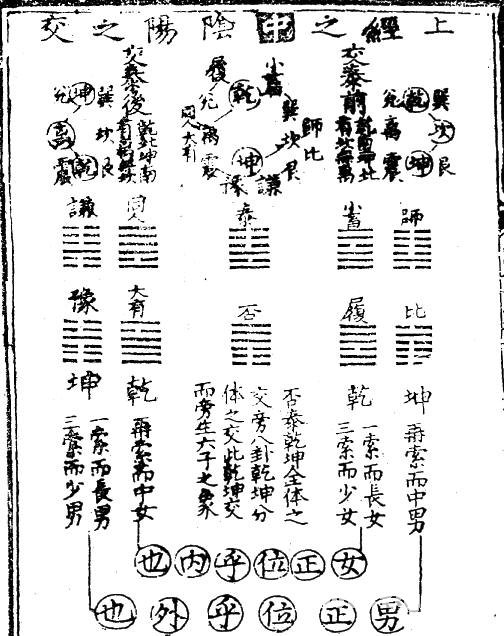 上經之中陰陽之交
乾
巽
坎
艮
坤
震
离
兌
交泰前
乾南坤北
小畜
乾
履
兌
巽
坎
師比
艮
謙
坤
豫
震
离
同人大有
乾北坤南
坤
巽
兌
坎
离
艮
乾
震
師
小畜
泰
同人
謙
比
履
否
大有
豫
坤
再索而中男
乾
一索而長女
三索而少女
否泰乾坤全体之
交旁八卦乾坤分
体之交此乾坤交
而旁生六子之象
乾
再索而中女
坤
一索而長男
三索而少男
女正位乎内也
男正位乎外也